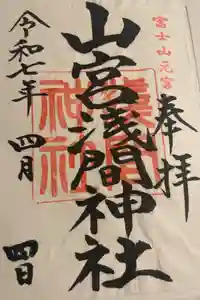 富士山元宮
奉拝
山宮浅間神社
令和七年 四月 四日